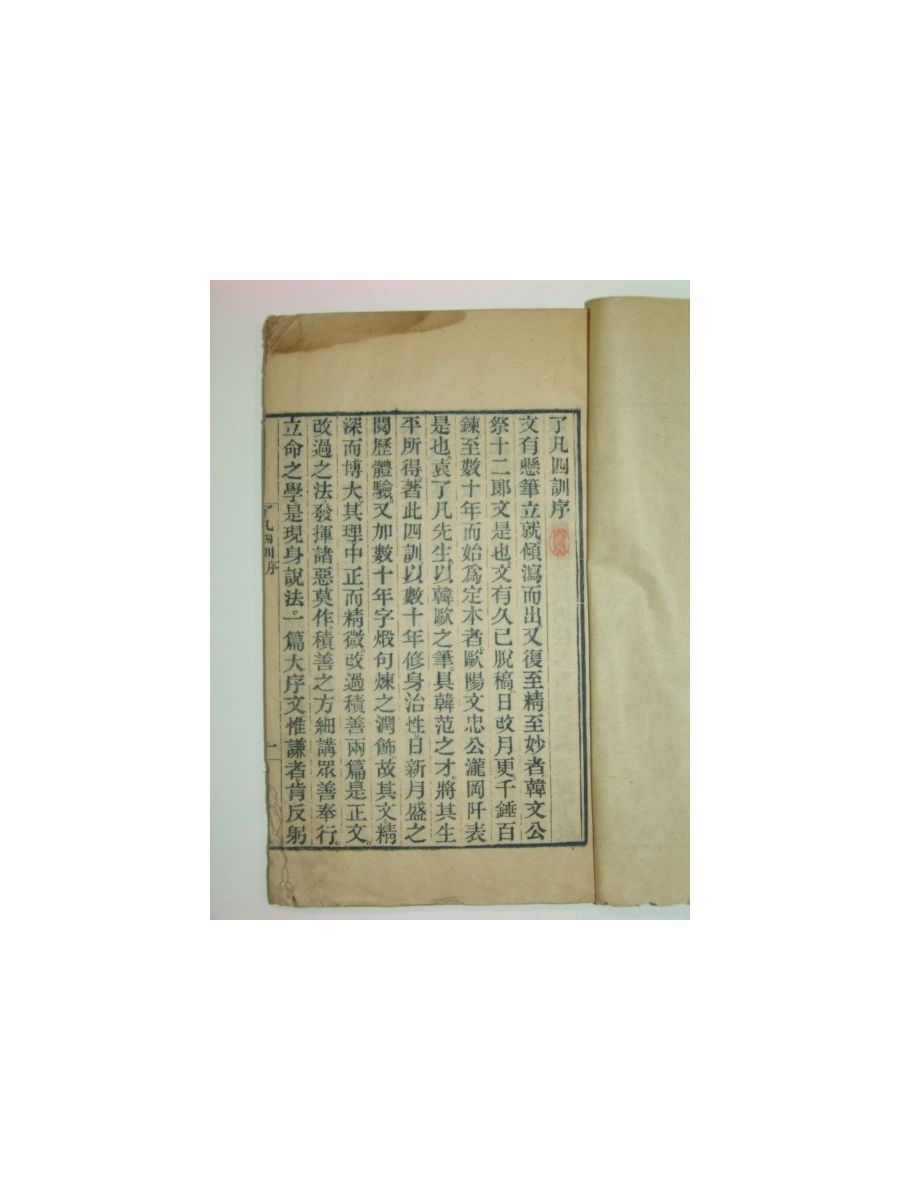 了凡四訓序
文有懸筆立就。傾瀉而出。又復至精至妙者。韓文公
祭十二郎文是也。文有久已脫稿。日改月更。千錘百
鍊。至數十年而始爲定本者。歐陽文忠公瀧岡阡表
是也。袁了凡先生。以韓歐之筆。具韓范之才。將其生
平所得。著此四訓。以數十年修身治性。日新月盛之
閱歷體驗。又加數十年字煅句煉之潤飾。故其文精
深而博大。其理中正而精微。改過積善兩篇是正文。
改過之法。發揮諸惡莫作。積善之方。細講眾善奉行。
立命之學。是現身說法。一篇大序文。惟謙者肯反躬
了凡四訓序
一